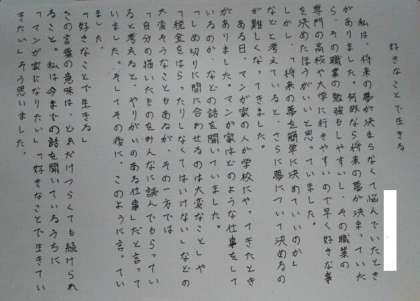 好きなことで生きる
私は、将来の夢が決まらなくて悩んでいたとき
がありました。何故なら将来の夢が決まっていた
ら、その職業の勉強がしやすいし、その職業の
専門の高校や大学に行きやすいので早く好きな事
を決めたほうがいいと思っていました。
しかし、「将来の夢を簡単に決めていいのか」
などと考えていると、さらに夢について決めるの
が難しくなってきました。
ある日、マンガ家の人が学校にやってきたとき
がありました。マンガ家はどのような仕事をして
いるのか、などの話を聞いていました。
「しめ切りに間に合わせるのは大変なこと」や
「税金をはらったりしなくてはいけない」などの
大変そうなこともあるが、その一方では
「自分の描いたものをみんなに読んでもらってい
ると考えると、やりがいのある仕事」だと言って
いました。そしてその後に、このように言ってい
ました。
「好きなことで生きる」
この言葉の意味は、どれだけつらくても続けられ
ること。私は今までの話を聞いているうちに
「マンガ家になりたい」「好きなことで生きてい
きたい」そう思いました。